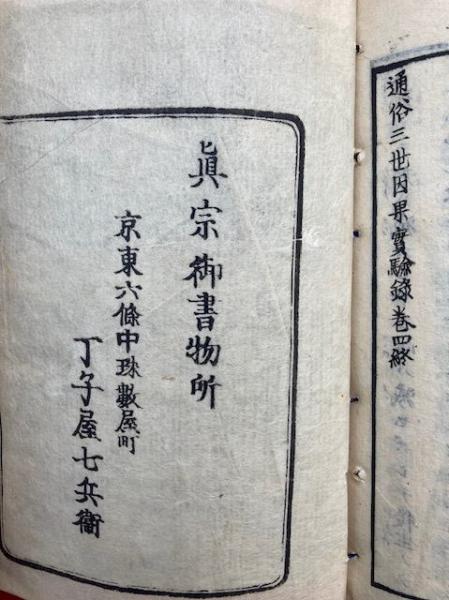 通俗三世因果實驗録巻四終
眞宗御書物所
京東六條中珠數屋町
丁子屋七兵衞